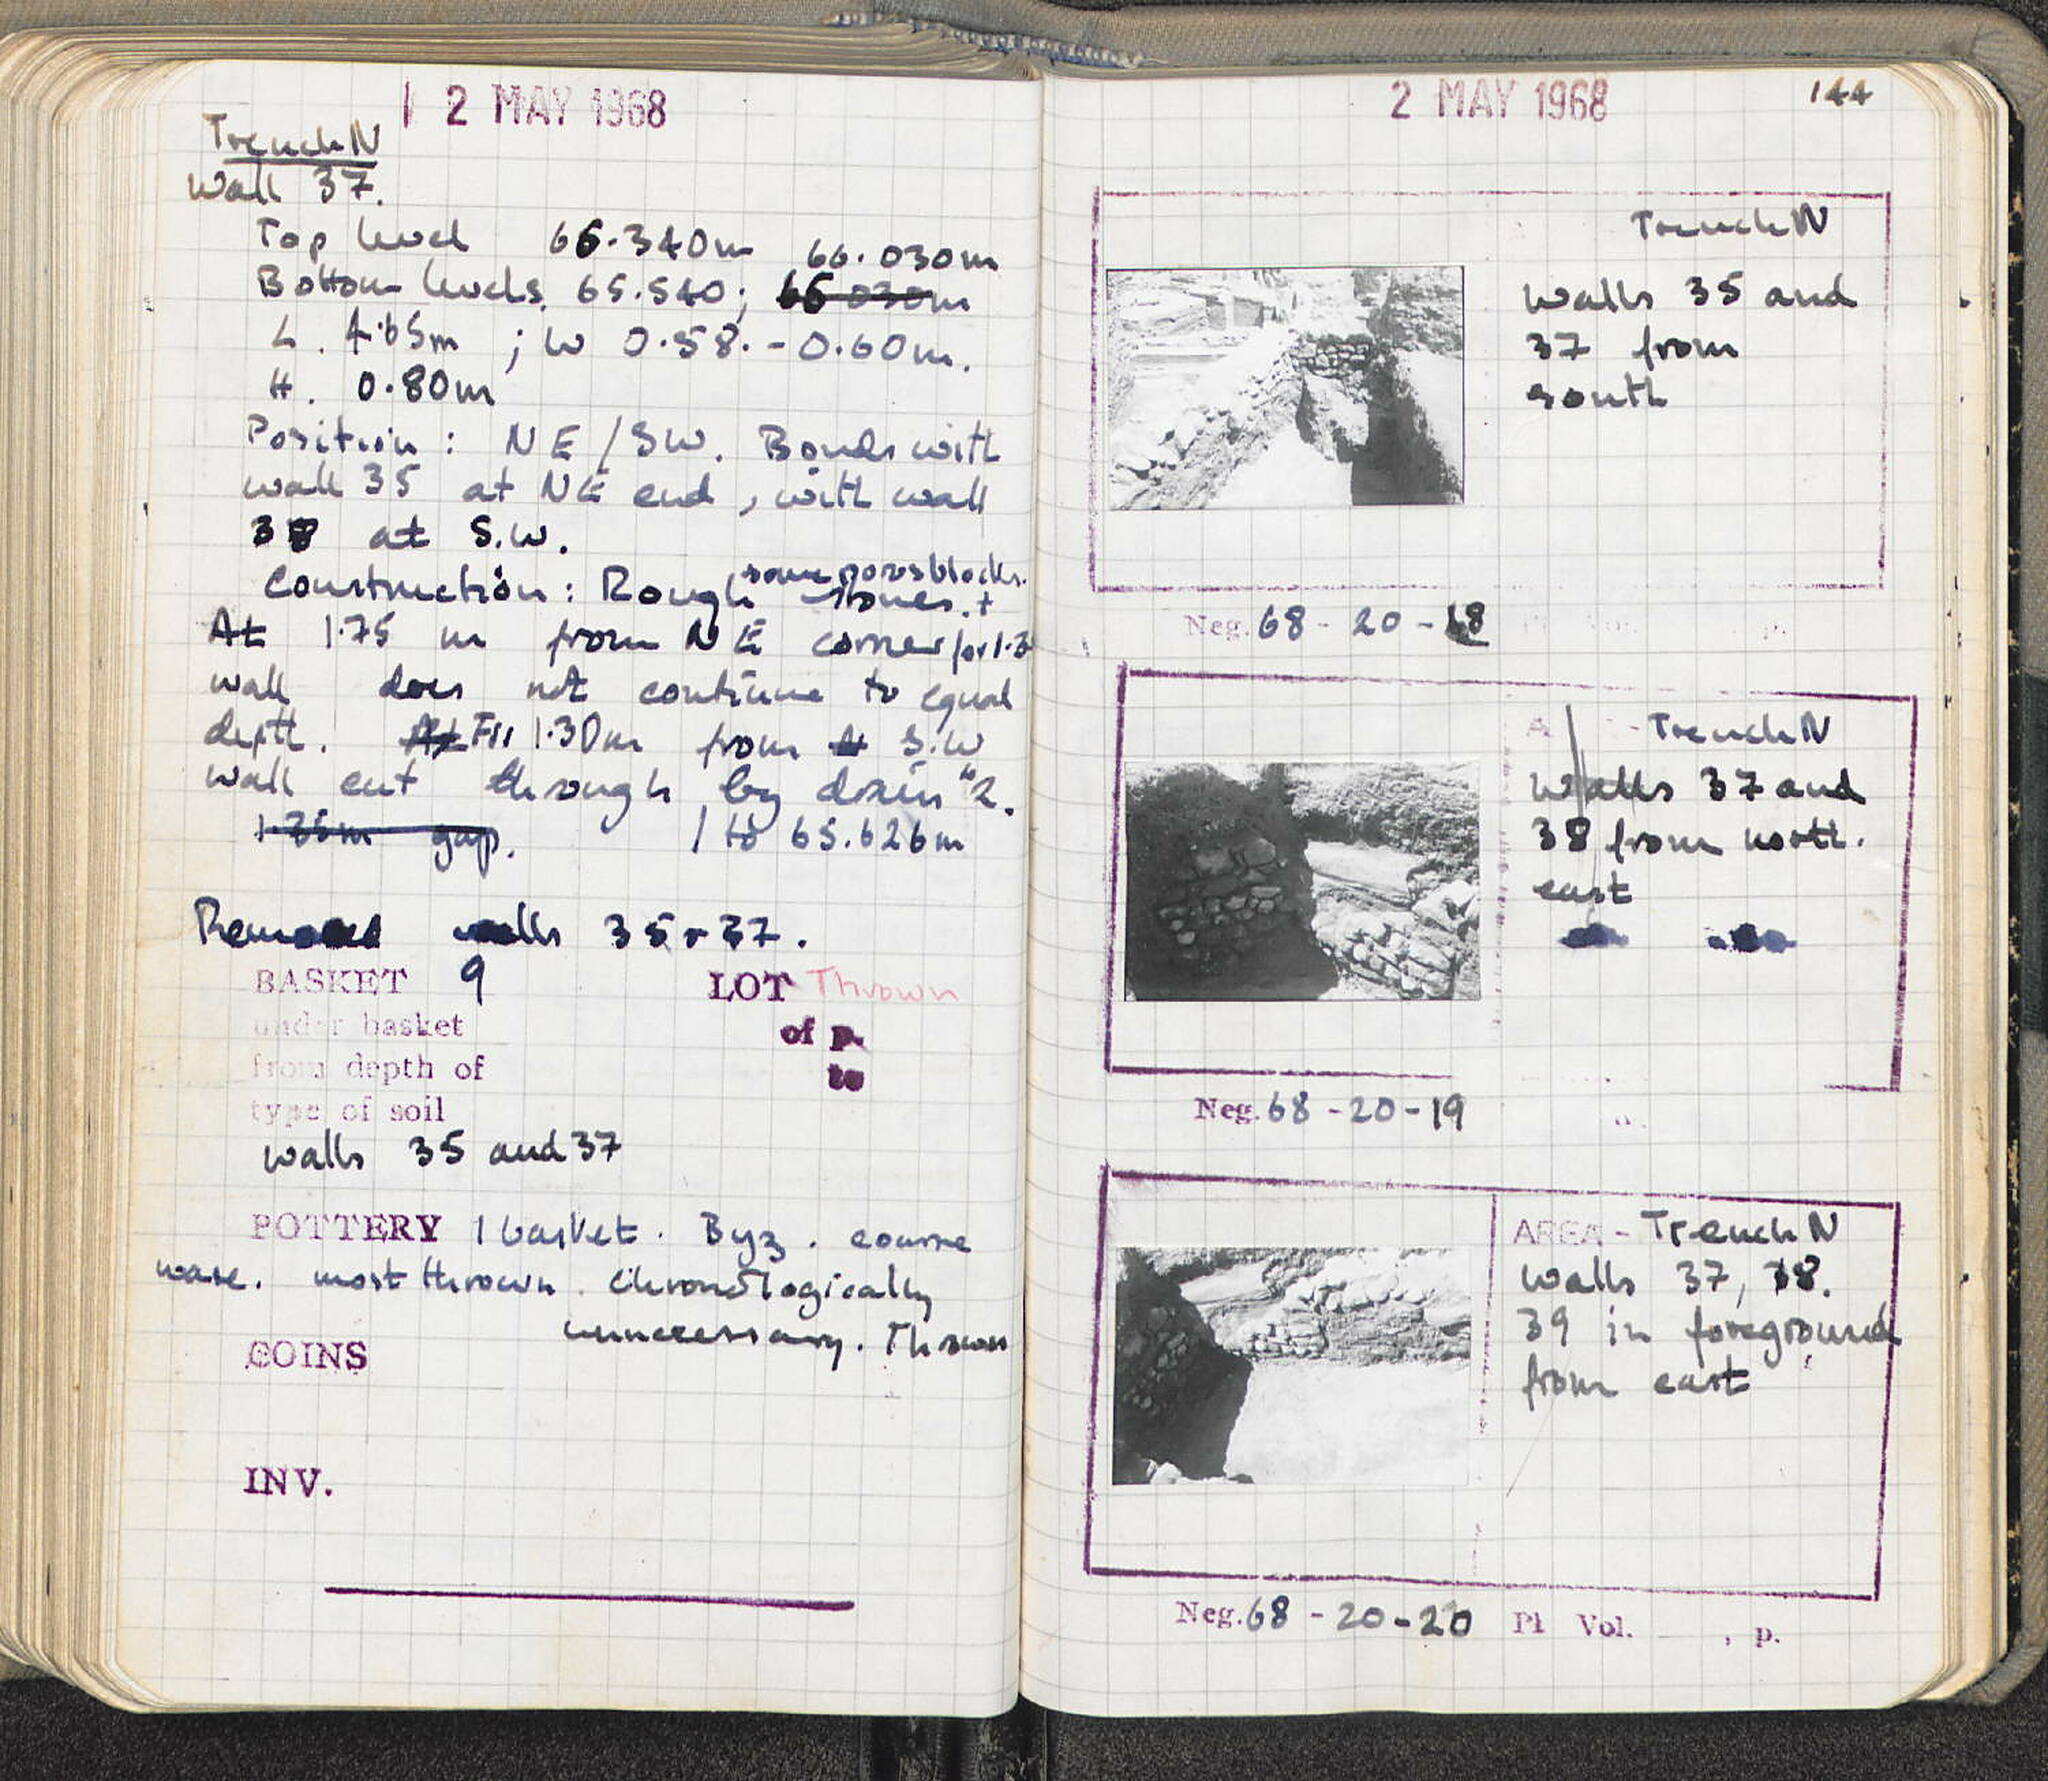 2 MAY 1968
Trench N
Wall 37.
Top level 66.340m 66.030m
Bottom levels. 65.540; 66 030m
L. 4.65m ; W 0.58. - 0.60m.
H. 0.80m
Position : NE/SW. Bonds with
wall 35 at NE end, with wall
38 at S.W.
Construction : Rough stones. + some poros blocks.
At 1.75 m from NE corner for 1.3
wall does not continue to equal
depth. At For 1.30m from S.W
wall cut through by drain 2.
1.35m gap. / to 65.626m
Removed walls 35 + 37.
BASKET 9 LOT Thrown
under basket of p.
from depth of to
type of soil
walls 35 and 37
POTTERY 1 basket. Byz. coarse
ware. most thrown. Chronologically
unnecessary. Thrown
COINS
INV.
2 MAY 1968 144
Trench N
Walls 35 and
37 from
south
Neg. 68 - 20 - 18 p.
A - Trench N
Walls 37 and
38 from north.
east
Neg. 68 - 20 - 19
AREA - Trench N
Walls 37, 38.
39 in foreground
from east
Neg. 68 - 20 - 20 Pl Vol. , p.